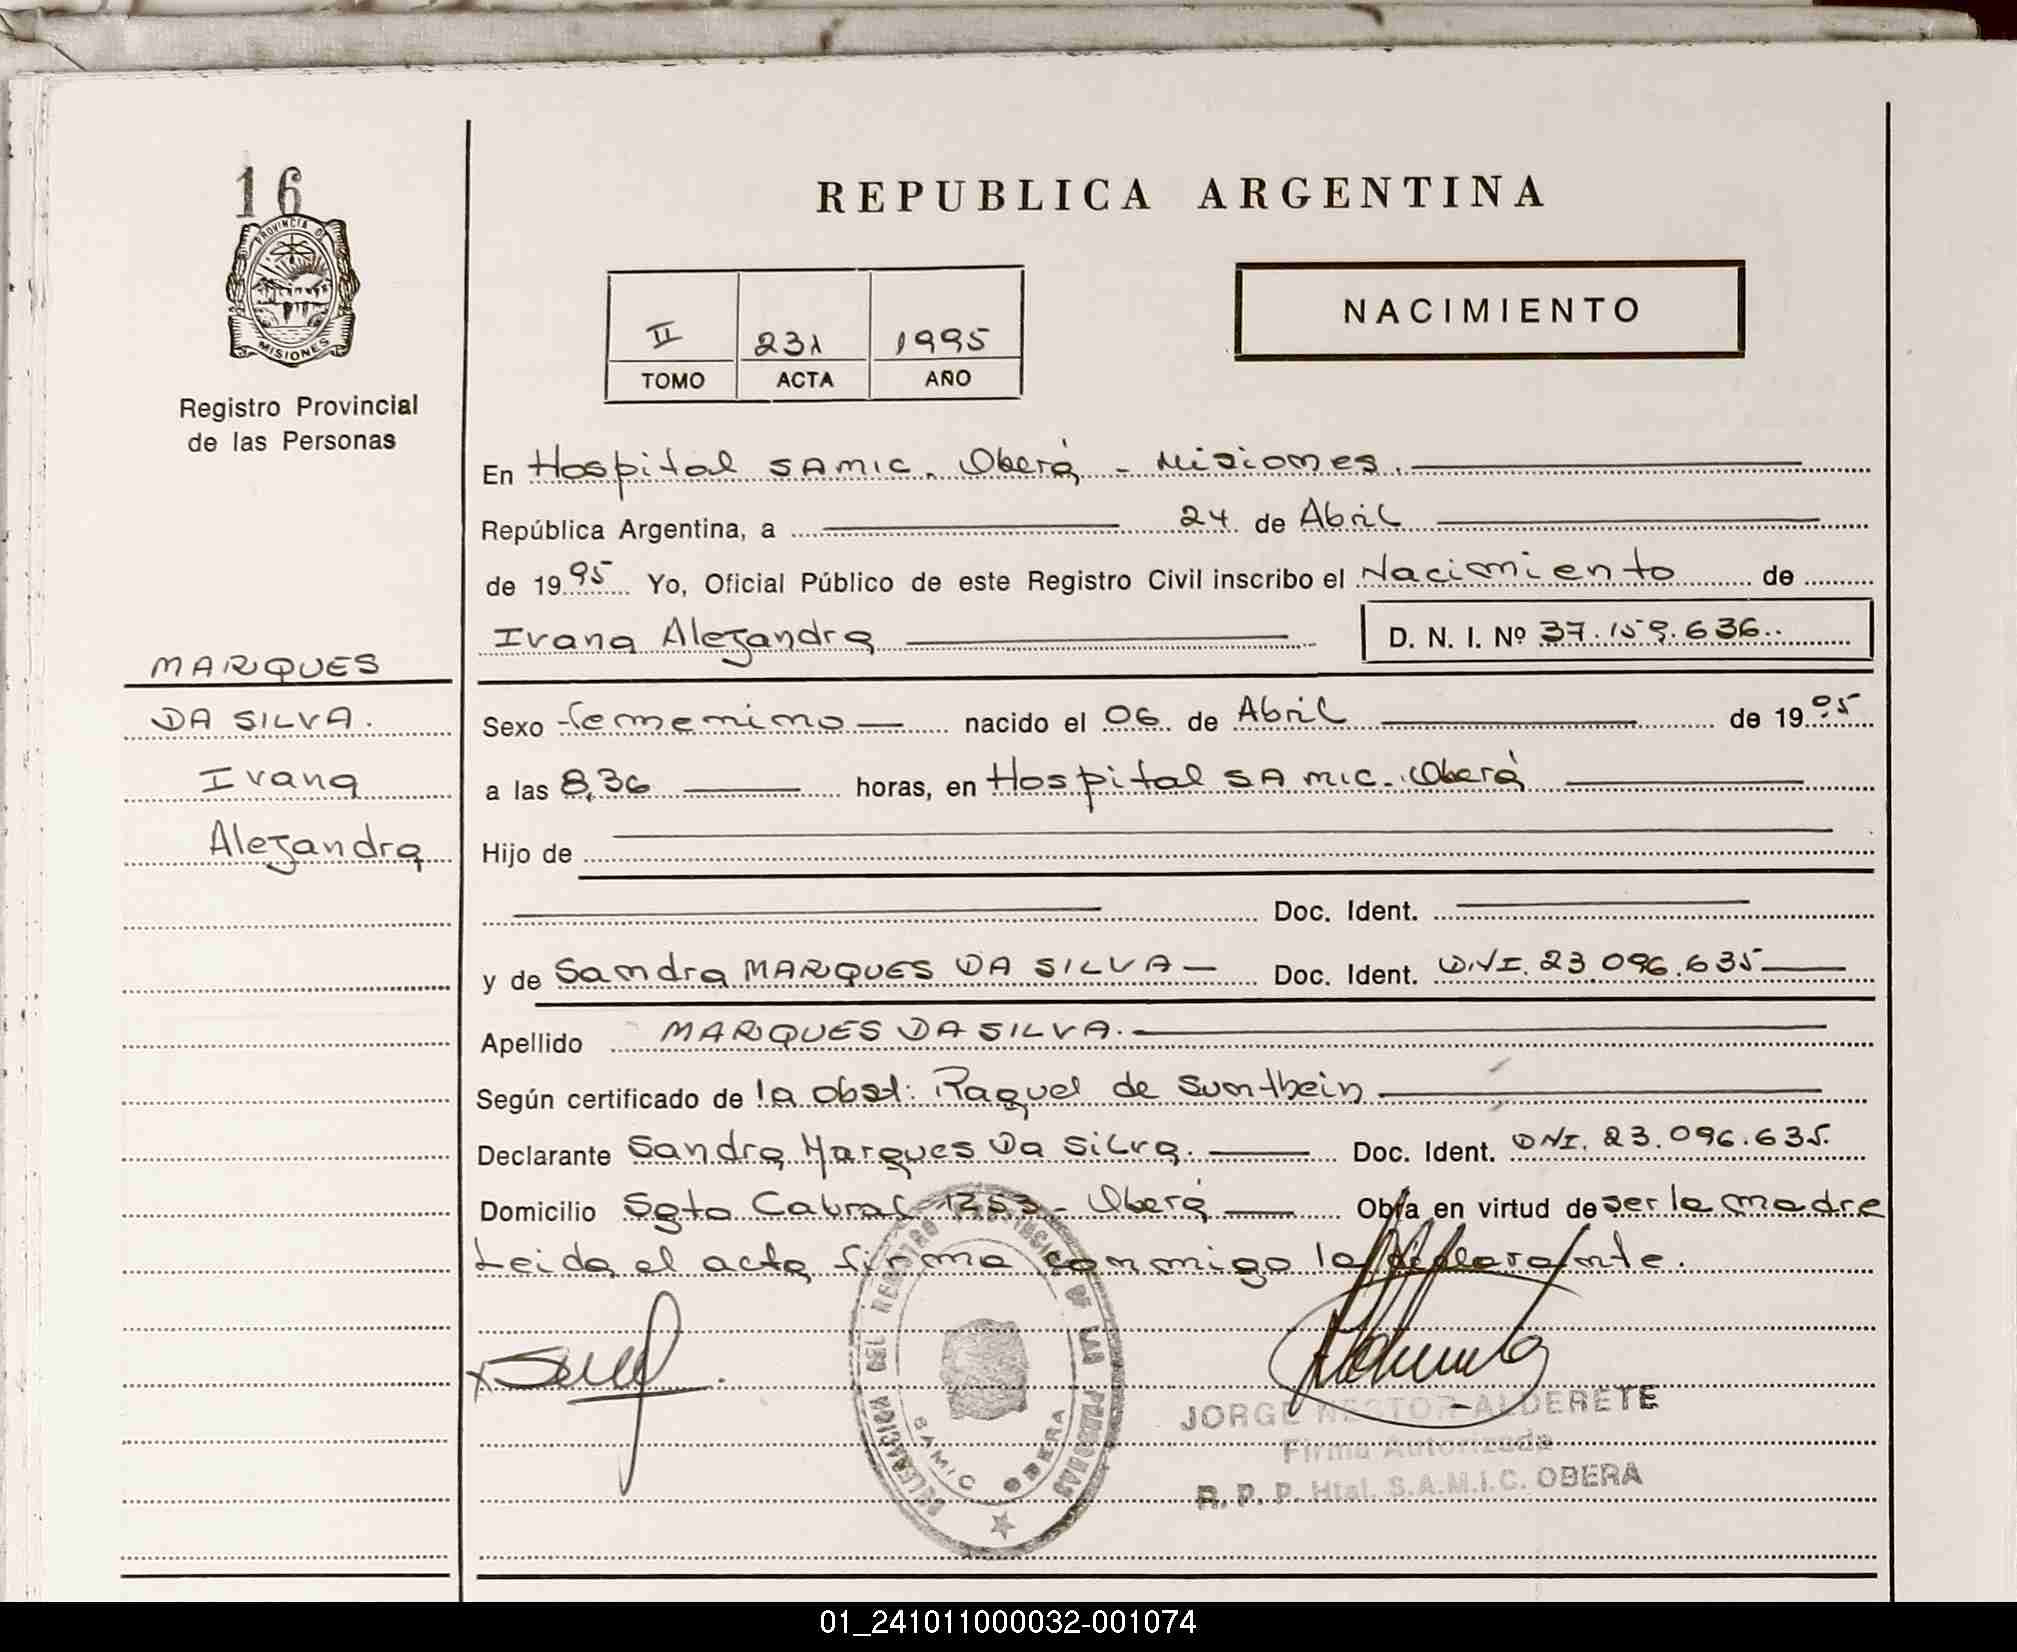 16
PROVINCIA DE
MISIONES
Registro Provincial
de las Personas
MARQUES
DA SILVA.
Ivana
Alejandra
REPUBLICA ARGENTINA
II 231 1995
TOMO ACTA AÑO
NACIMIENTO
En Hospital SAMIC. Oberá - Misiones.
República Argentina, a 24 de Abril
de 1995 Yo, Oficial Público de este Registro Civil inscribo el Nacimiento de
Ivana Alejandra D. N. I. Nº 37.159.636.
Sexo femenino nacido el 06 de Abril de 1995
a las 8,36 horas, en Hospital SAMIC. Oberá
Hijo de
Doc. Ident.
y de Sandra MARQUES DA SILVA Doc. Ident. D.N.I. 23.096.635
Apellido MARQUES DA SILVA.
Según certificado de la obst: Raquel de Sunthein
Declarante Sandra Marques Da Silva. Doc. Ident. DNI. 23.096.635.
Domicilio Sgto Cabral 1253 - Oberá Obra en virtud de ser la madre
Leida el acta firma conmigo la declarante.
DELEGACION DEL REGISTRO PROVINCIAL DE LAS PERSONAS
SAMIC OBERA
JORGE NESTOR ALDERETE
Firma Autorizada
R. P. P. Htal. S.A.M.I.C. OBERA
01_241011000032-001074